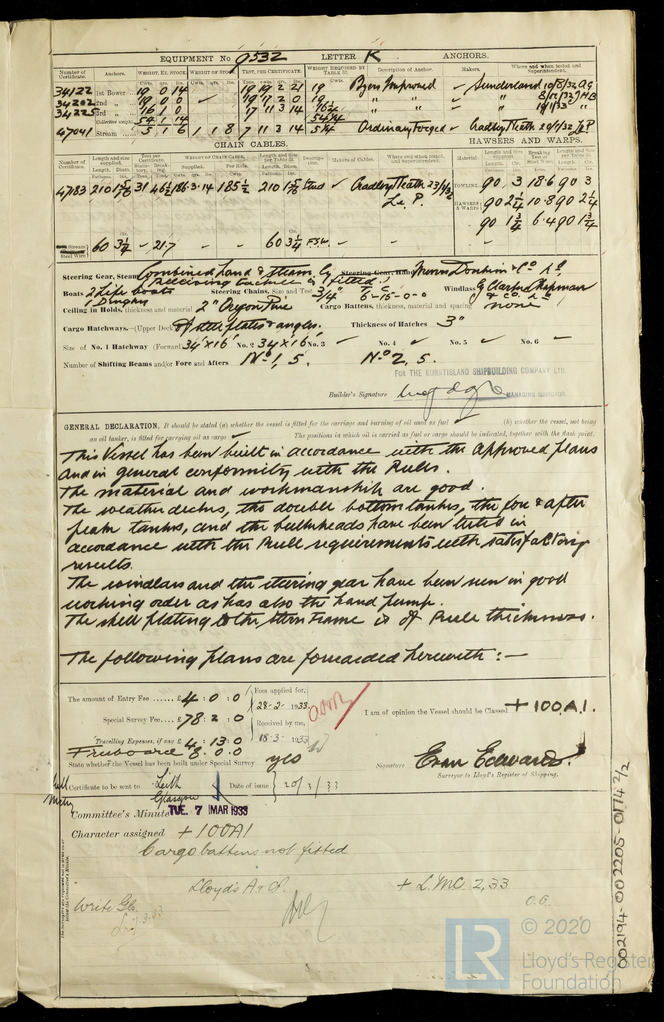 EQUIPMENT No 9532 LETTER K ANCHORS.
Number of Certificate. Anchors. WEIGHT, EX. STOCK. WEIGHT OF STOCK. TEST, PER CERTIFICATE. WEIGHT REQUIRED BY TABLE Description of Anchor. Makers. Where and when tested and Superintendent.
34122 1st Bower 19 0 14 19 19 2 21 19 Byers Improved Sunderland
34202 2nd " 19 0 0 19 17 2 0 19 " "
34225 3rd " 16 1 0 17 11 3 14 " "
Collective weight 54 1 14
47041 Stream 5 1 6 1 1 8 7 11 3 14 5¼ Ordinary Forged Cradley Heath
CHAIN CABLES. HAWSERS AND WARPS.
Number of Certificate. Length and size supplied. WEIGHT OF CHAIN CABLE. Makers of Cables. Where and when tested, and Superintendent. Material
4783 210 31 186.3.14 185½ 210 Stud Cradley Heath TOWLING 90 3 18.6 90 3
HAWSERS & WARPS 90 2¼ 10.8 90 2¼
90 1¾ 6.4 90 1¾
Stream Steel Wire 60 3¼ 21.7 60 3¼ F.S.W.
Steering Gear, Steam Combined hand & steam
Boats 2 Life boats Steering Chains, Size and Test 3/4" 6-15-0-0 Windlass Clarke Chapman & Co. Ld
1 Dinghy
Ceiling in Holds, thickness and material 2" Oregon Pine Cargo Battens, thickness, material and spacing none
Cargo Hatchways.—(Upper Deck) of steel plates & angles. Thickness of Hatches 3"
Size of No. 1 Hatchway (Forward) 34' x 16' No. 2 34' x 16' No. 3 No. 4 No. 5 No. 6
Number of Shifting Beams and/or Fore and Afters No 1, 5. No 2, 5.
FOR THE BURNTISLAND SHIPBUILDING COMPANY LTD.
Builder's Signature MANAGING DIRECTOR.
GENERAL DECLARATION. It should be stated (a) whether the vessel is fitted for the carriage and burning of oil used as fuel (b) whether the vessel, not being
an oil tanker, is fitted for carrying oil as cargo The positions in which oil is carried as fuel or cargo should be indicated, together with the flash point.
This Vessel has been built in accordance with the approved plans
and in general conformity with the Rules.
The material and workmanship are good.
The weather decks, the double bottom tanks, the fore & after
peak tanks, and the bulkheads have been tested in
accordance with the Rule requirements with satisfactory
results.
The windlass and the steering gear have been seen in good
working order as has also the hand pump.
The shell plating & the Stern Frame is of Rule thickness.
The following plans are forwarded herewith :—
The amount of Entry Fee ...... £ 4 : 0 : 0 Fees applied for, 28-2-1933
Special Survey Fee.... £ 78 : 2 : 0 Received by me,
Travelling Expenses, if any £ 4 : 13 : 0 18-3-1933
Freeboard 8.0.0
I am of opinion the Vessel should be Classed + 100A1.
State whether the Vessel has been built under Special Survey yes
Signature Evan Edwards
Surveyor to Lloyd's Register of Shipping.
Certificate to be sent to Leith Glasgow Date of issue 20/3/33
Committee's Minute TUE. 7 MAR 1933
Character assigned + 100A1
Cargo battens not fitted
Lloyd's A & C.P. + L.M.C. 2,33
O.G.
Write Gls
7.3.33
002194-002205-0174 2/2
LR © 2020
Lloyd's Register
Foundation